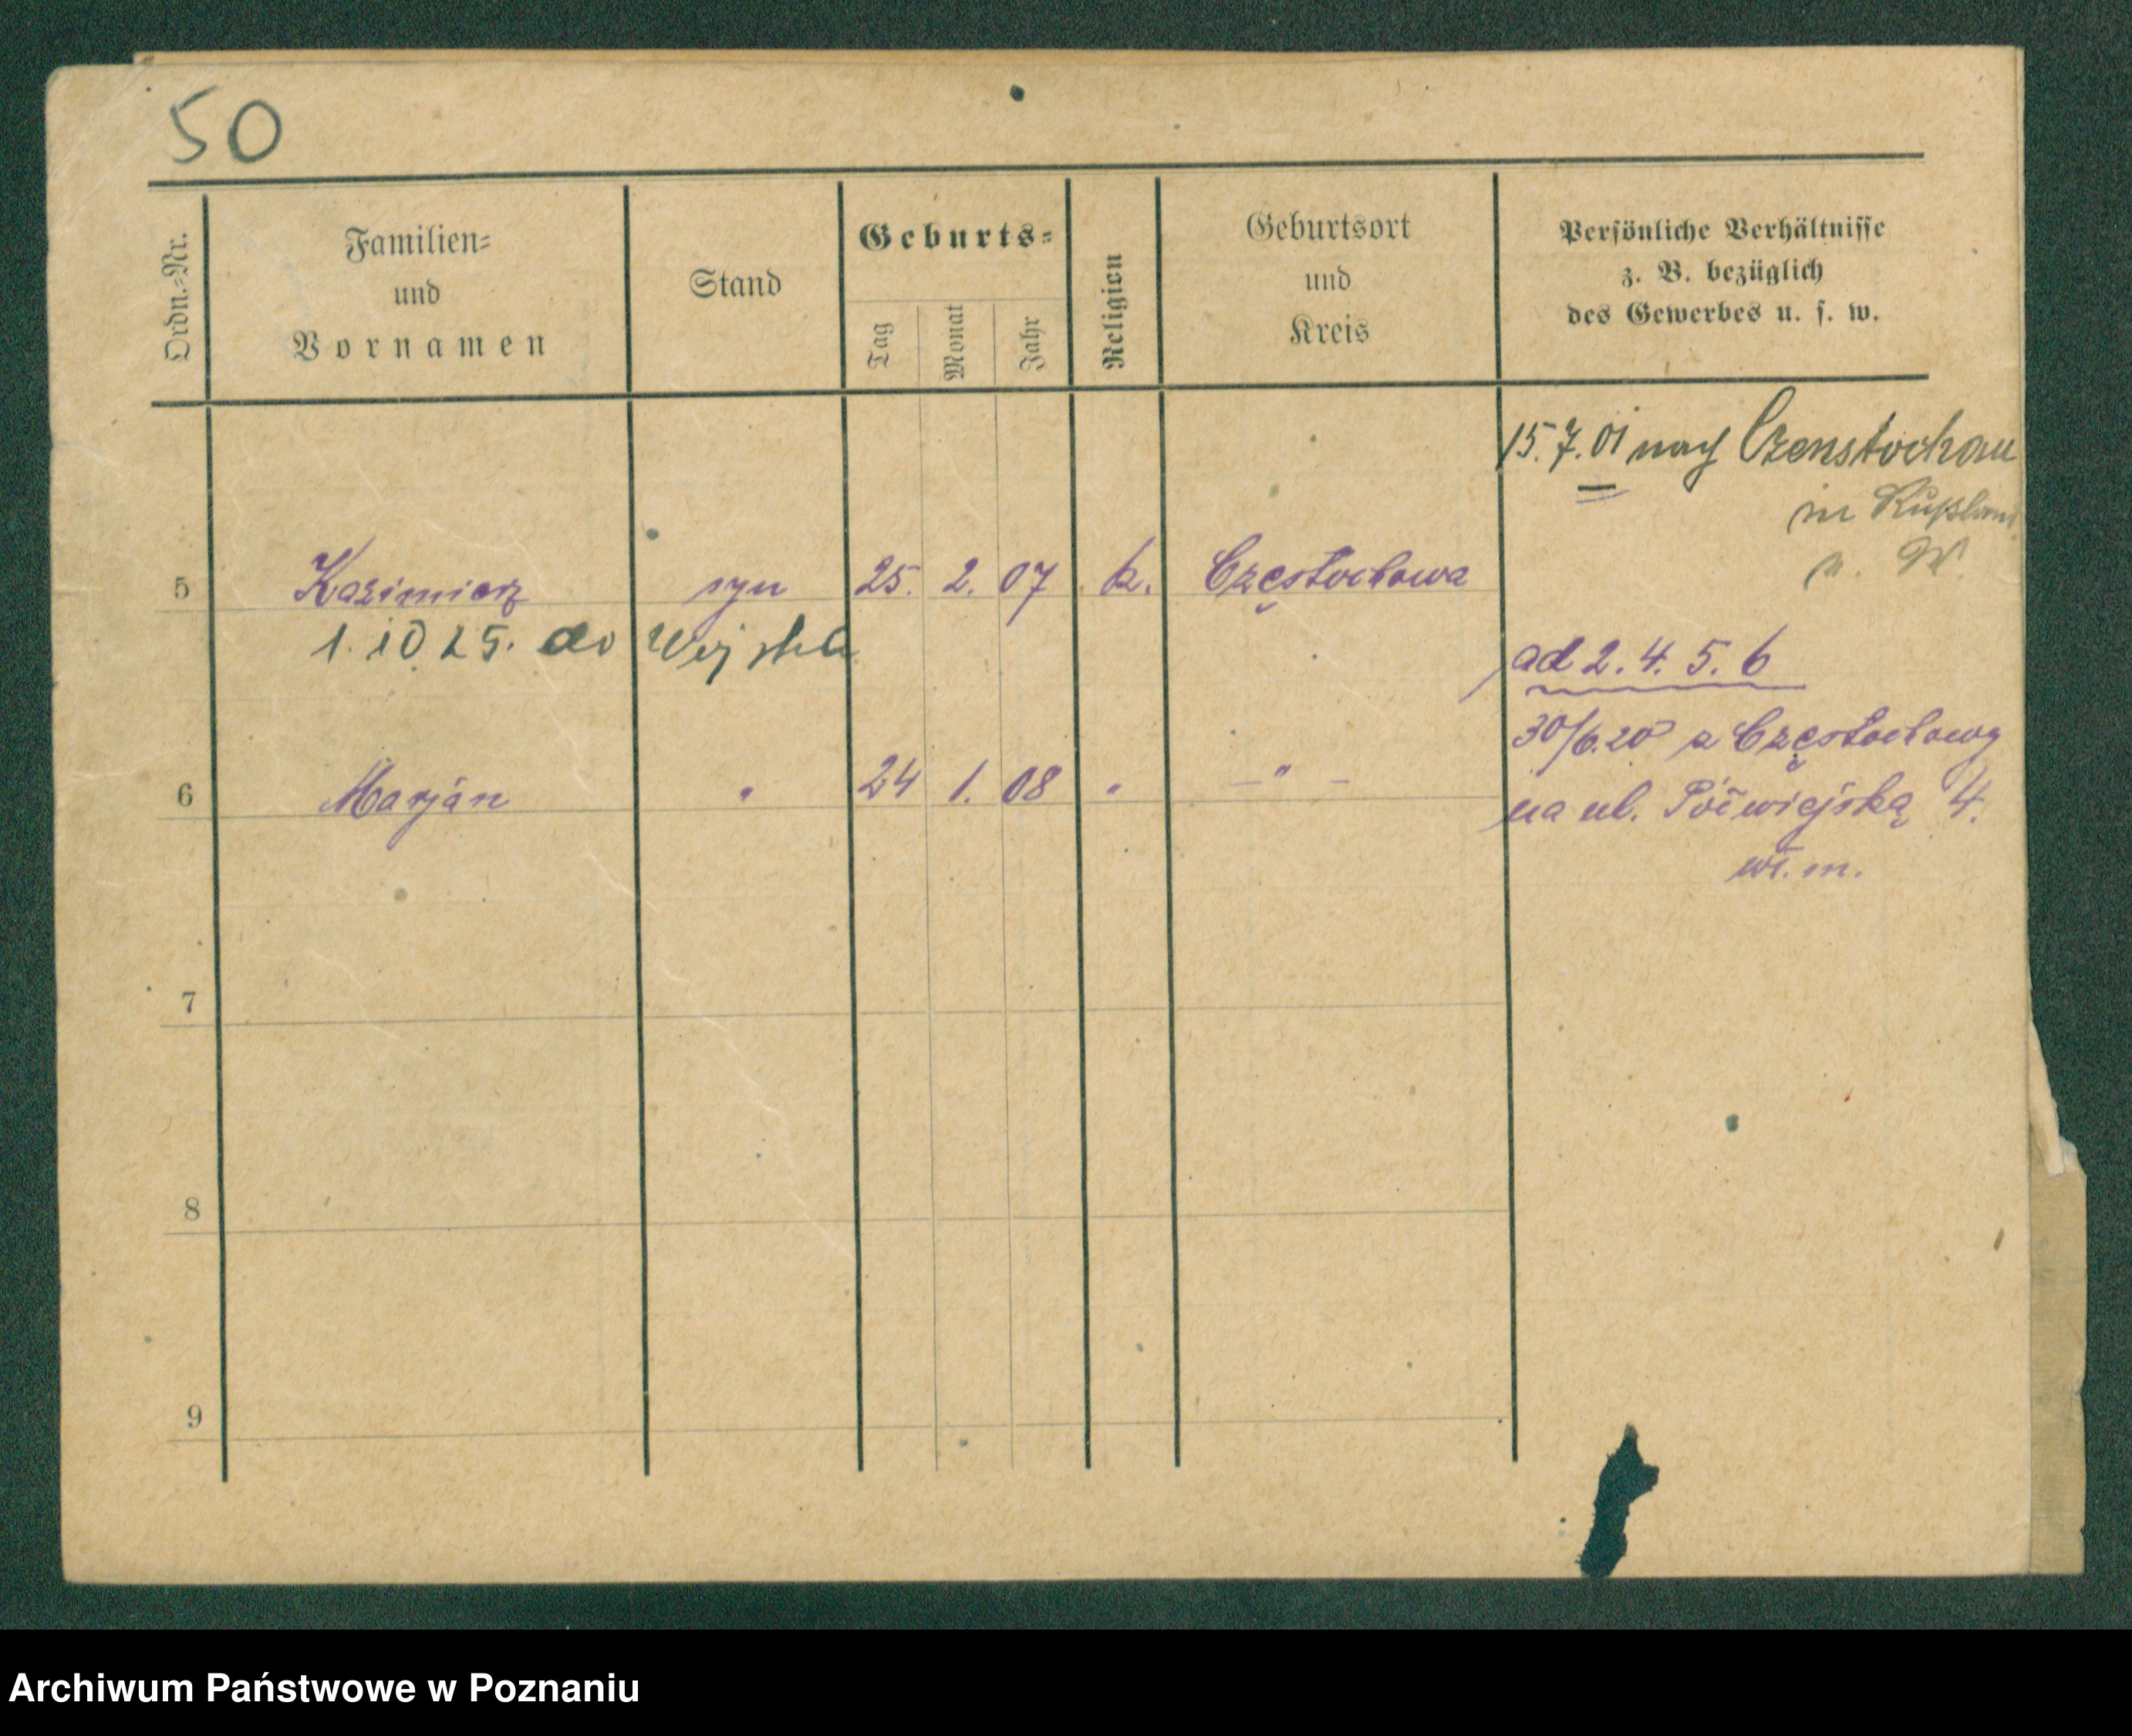 50
Ordn.=Nr.
Familien=
und
Vornamen
Stand
Geburts=
Tag
Monat
Jahr
Religion
Geburtsort
und
Kreis
Persönliche Verhältnisse
z. B. bezüglich
des Gewerbes u. s. w.
15.7.01 nach Czenstochau
in Rußland
5 Kazimierz syn 25. 2. 07 k. Częstochowa
1.10 25. do Wojska
ad 2. 4. 5. 6
30/6.20 z Częstochowy
6 Marjan " 24 1. 08 " — " —
na ul. Półwiejską 4.
wł. m.
7
8
9
Archiwum Państwowe w Poznaniu